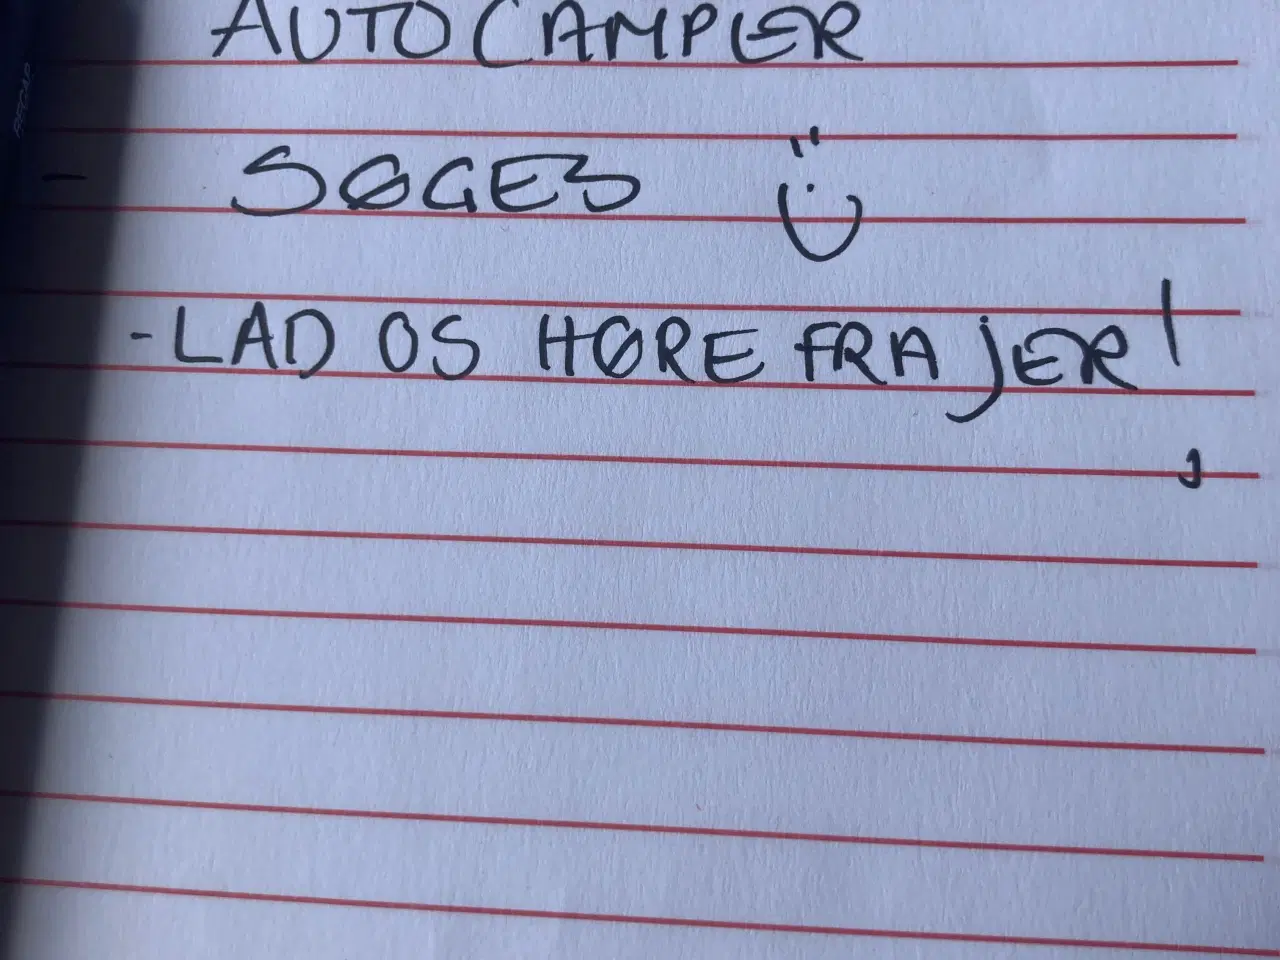 AUTOCAMPER
- SØGES ¨)
- LAD OS HØRE FRA JER!